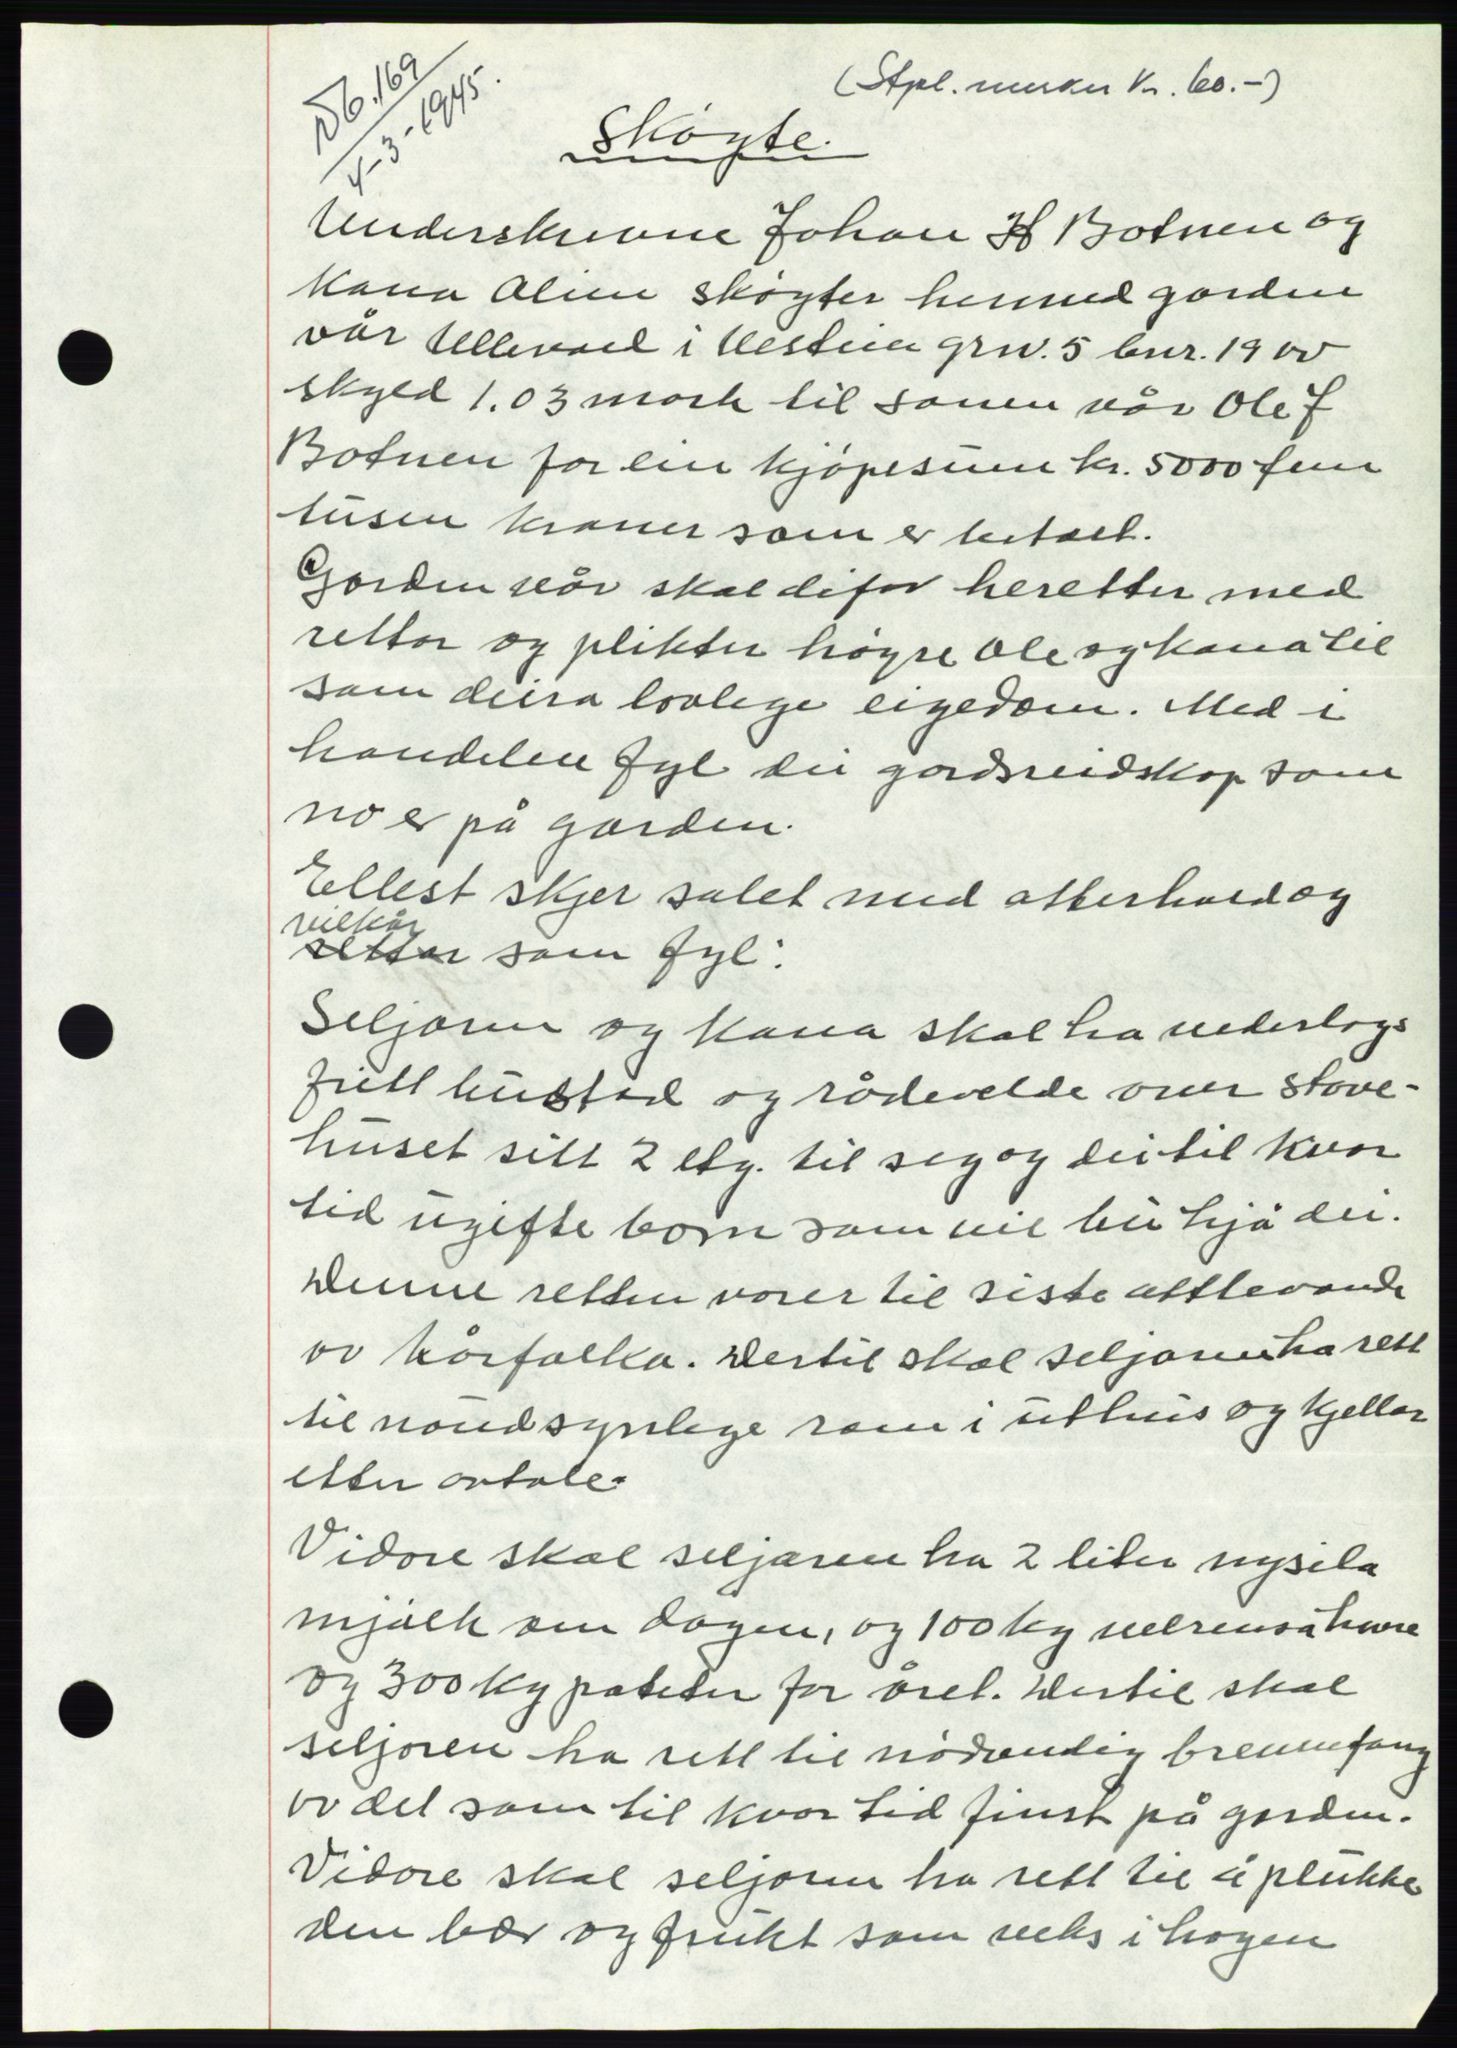 Db. 169
4-3-1945.
(Stpl. merker kr. 60.-)
Skøyte.
Underskrivne Johan H Botnen og
kana Aline skøyter hermed garden
vår Ullavoll i Vesteim grn. 5 bnr. 19 av
skyld 1.03 mark til sonen vår Ole J
Botnen for ein kjøpesum kr. 5000 fem
tusen kroner som er betalt.
Garden vår skal difor heretter med
rettar og plikter høyre Ole og kana til
som deira lovlege eigedom. Med i
handelen fyl dei gardsreidskap som
no er på garden.
Ellest skjer salet med atterhald og
vilkår
rettar som fyl:
Seljaren og kana skal ha vederlags
fritt hustad og råderelde over stove-
huset sitt 2 etg. til seg og dei til kvar
tid ugifte born som vil bu hjå dei.
Denne retten varer til siste attlevande
av kårfolka. Dertil skal seljaren ha rett
til naudsynlege rom i uthus og kjellar
etter avtale.
Vidare skal seljaren ha 2 liter nysila
mjølk om dagen, og 100 kg velrensa havre
og 300 kg poteter for året. Dertil skal
seljaren ha rett til nødvendig brennefang
av det som til kvar tid finst på garden.
Vidare skal seljaren ha rett til å plukke
den bær og frukt som veks i hagen